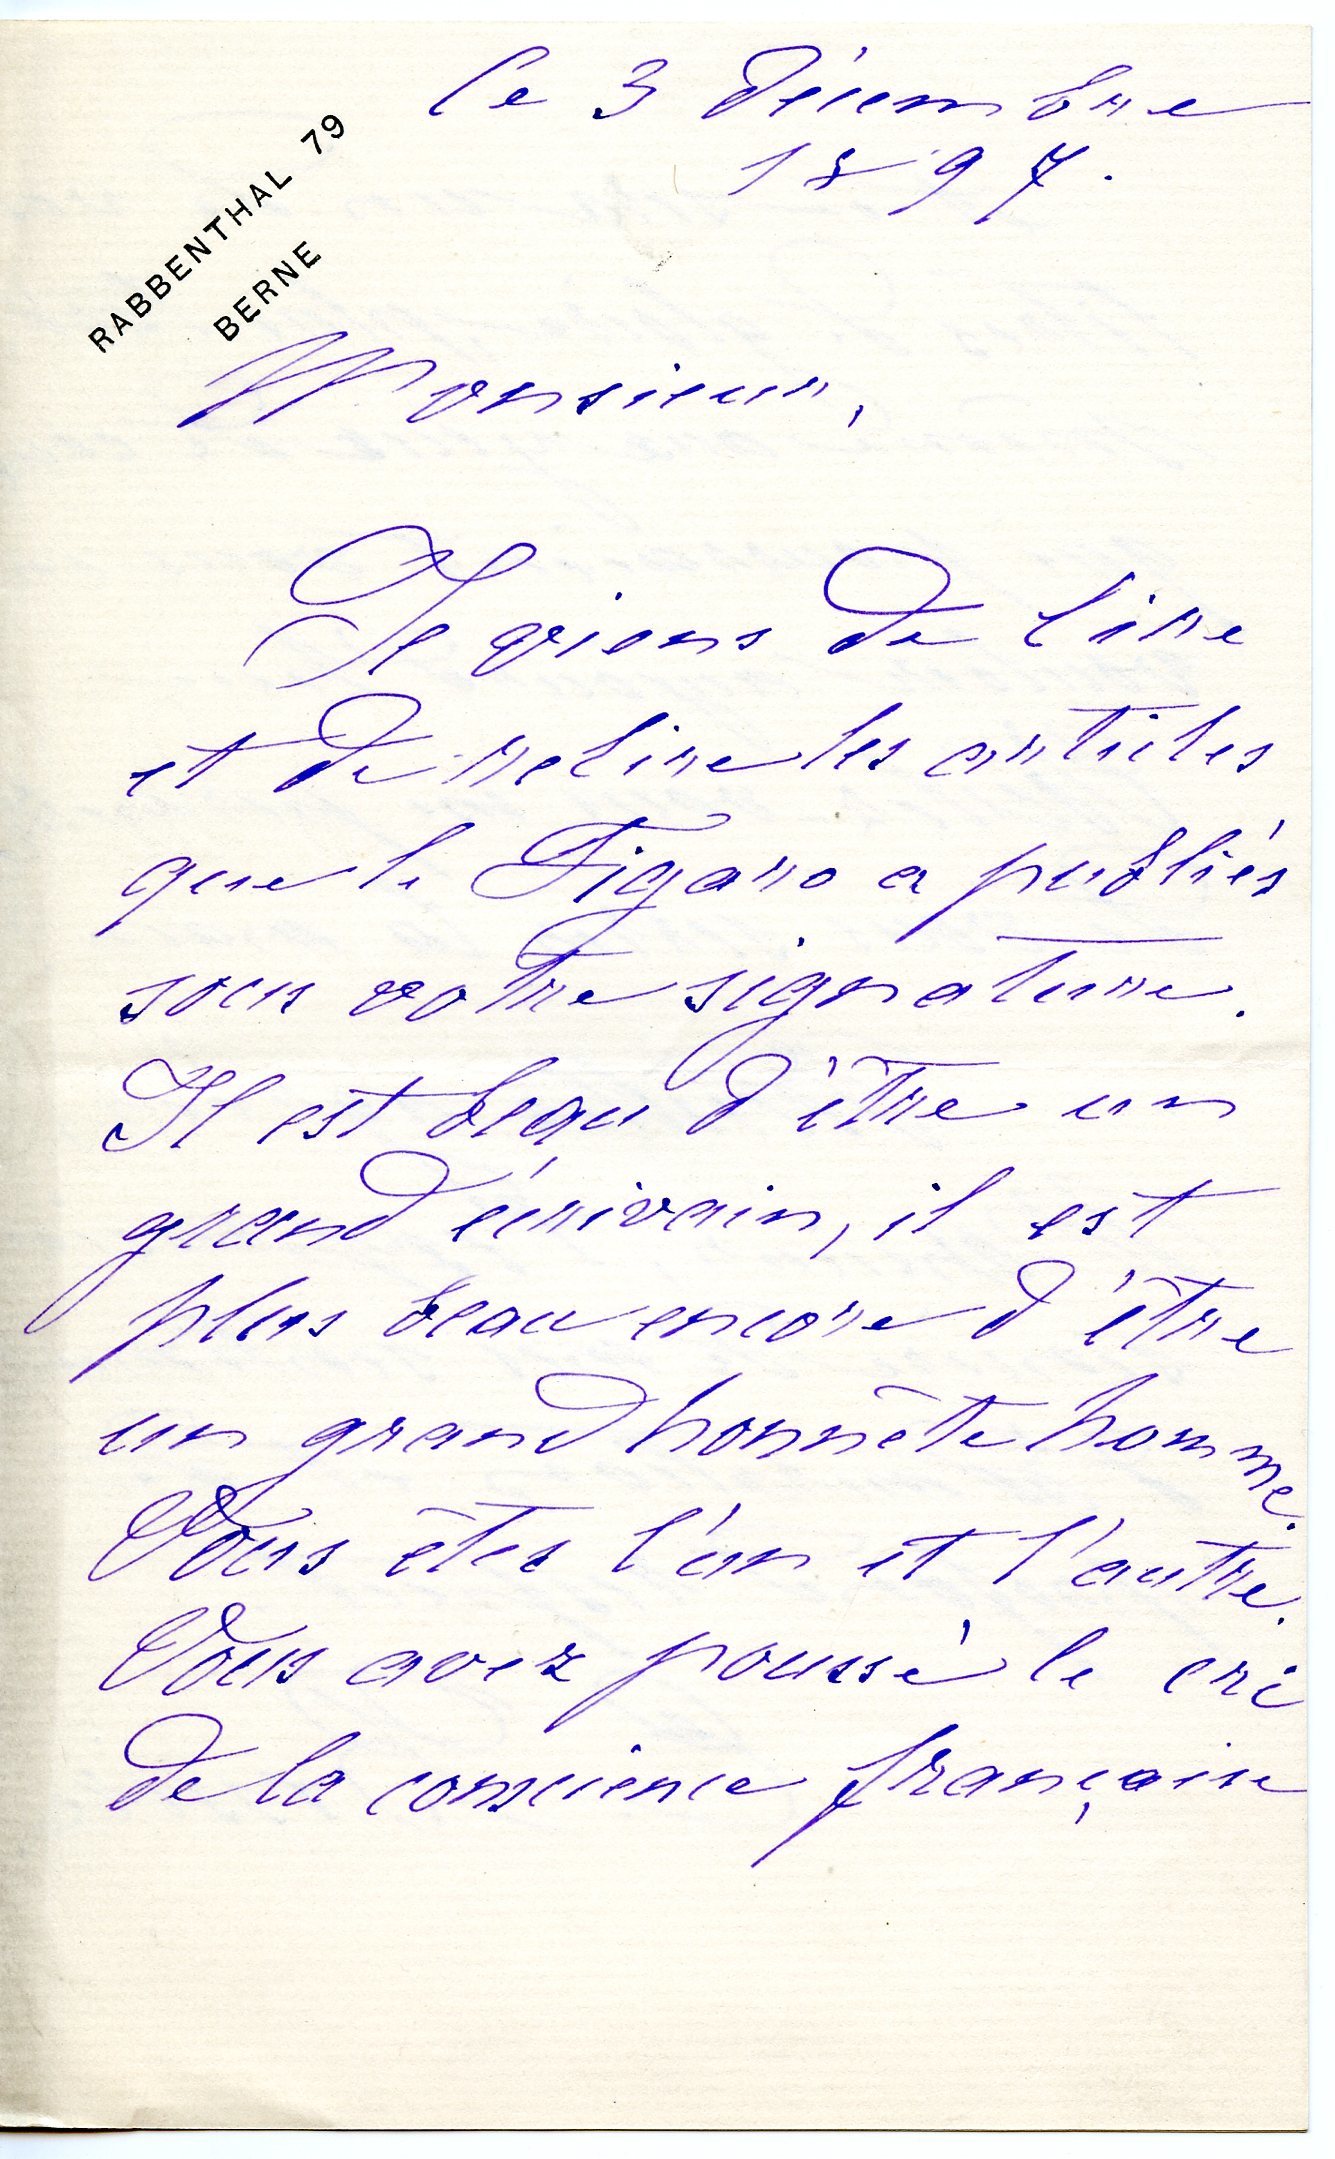 le 3 décembre
1897.
RABBENTHAL 79
BERNE
Monsieur,
Je viens de lire
et de relire les articles
que le Figaro a publiés
sous votre signature.
Il est beau d'être un
grand écrivain, il est
plus beau encore d'être
un grand honnête homme.
Vous êtes l'un et l'autre.
Vous avez poussé le cri
de la conscience française